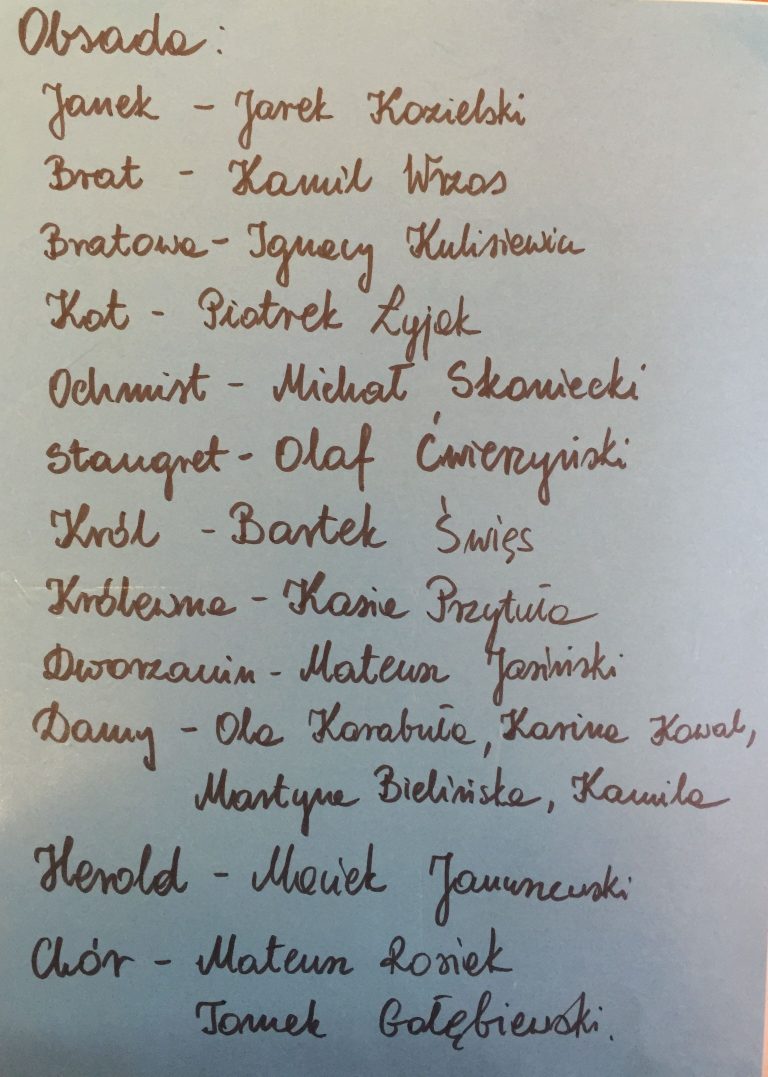 Obsada:
Janek - Jarek Kozielski
Brat - Kamil Wrzos
Bratowa - Ignacy Kulisiewicz
Kot - Piotrek Łyjek
Ochmist - Michał Skoniecki
Stangret - Olaf Ćwierzyński
Król - Bartek Święs
Królewna - Kasia Przytuła
Dworzanin - Mateusz Jasiński
Damy - Ola Karabuła, Karina Kowal,
Martyna Bielińska, Kamila
Herold - Maciek Januszewski
Chór - Mateusz Rosiek
Tomek Gołębiewski.